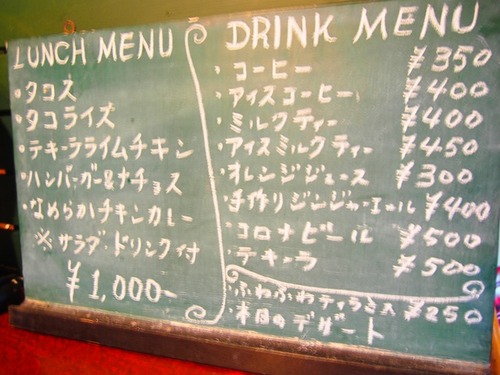 LUNCH MENU
・タコス
・タコライズ
・テキーラライムチキン
・ハンバーガー&ナチョス
・なめらかチキンカレー
※サラダ・ドリンク付
¥1,000-
DRINK MENU
・コーヒー ¥350
・アイスコーヒー ¥400
・ミルクティー ¥400
・アイスミルクティー ¥450
・オレンジジュース ¥300
・手作りジンジャーエール ¥400
・コロナビール ¥500
・テキーラ ¥500
・ふわふわティラミス ¥250
・本日のデザート